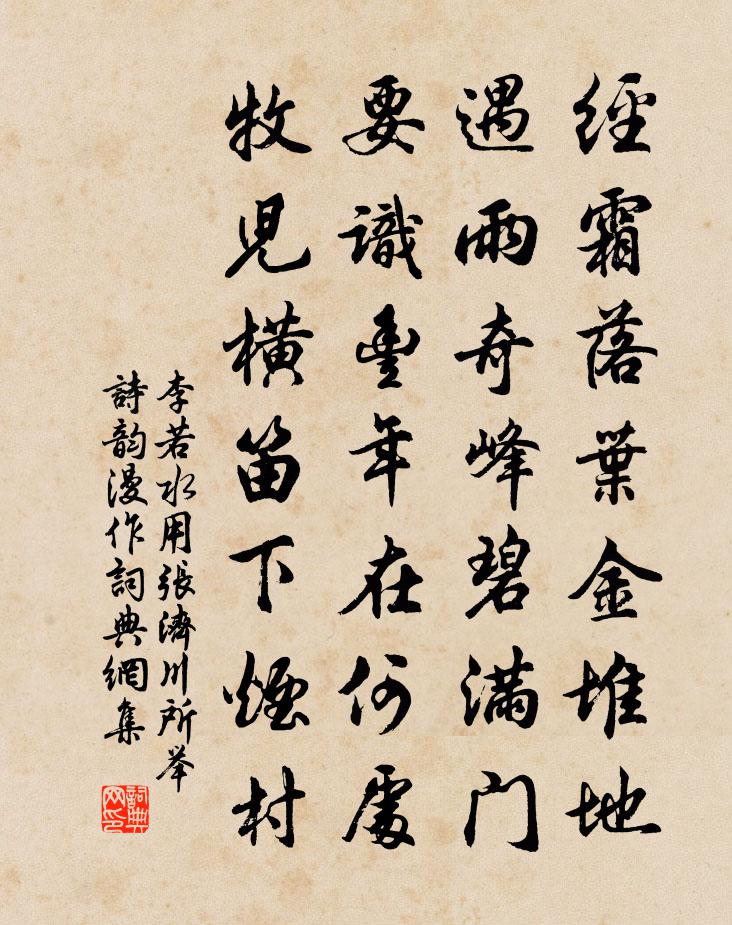 經霜落葉金堆地
遇雨奇峰碧滿門
要識豐年在何處
牧児橫笛下煙村
李若水用張濟川所举
詩韵漫作詞典網集
詞典网印